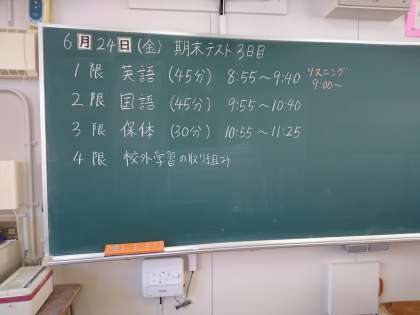 6月24日(金) 期末テスト3日目
1限 英語 (45分) 8:55～9:40 リスニング 9:00～
2限 国語 (45分) 9:55～10:40
3限 保体 (30分) 10:55～11:25
4限 校外学習の取り組み